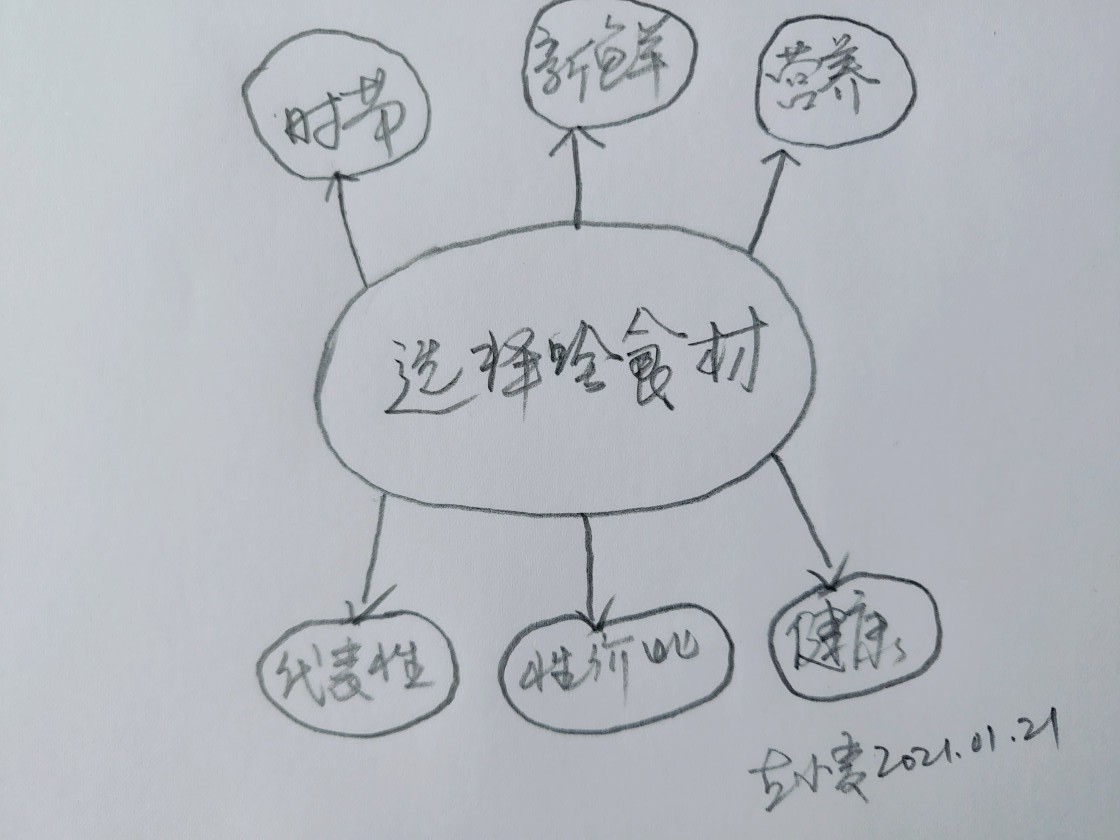 时节
新鲜
营养
选择食材
代表性
性价比
健康
小麦2021.01.21